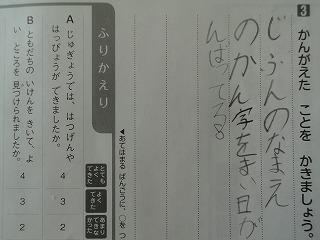 3 かんがえた ことを かきましょう。
じぶんのなまえ
のかん字をまい日が
んばってる
◀あてはまる ばんごうに、○をつ
ふりかえり
とても よく できた
よく できた
あまり できな かった
A じゅぎょうでは、はつげんや
はっぴょうが できましたか。
4 3 2
B ともだちの いけんを きいて、よ
い ところを 見つけられましたか。
4 3 2